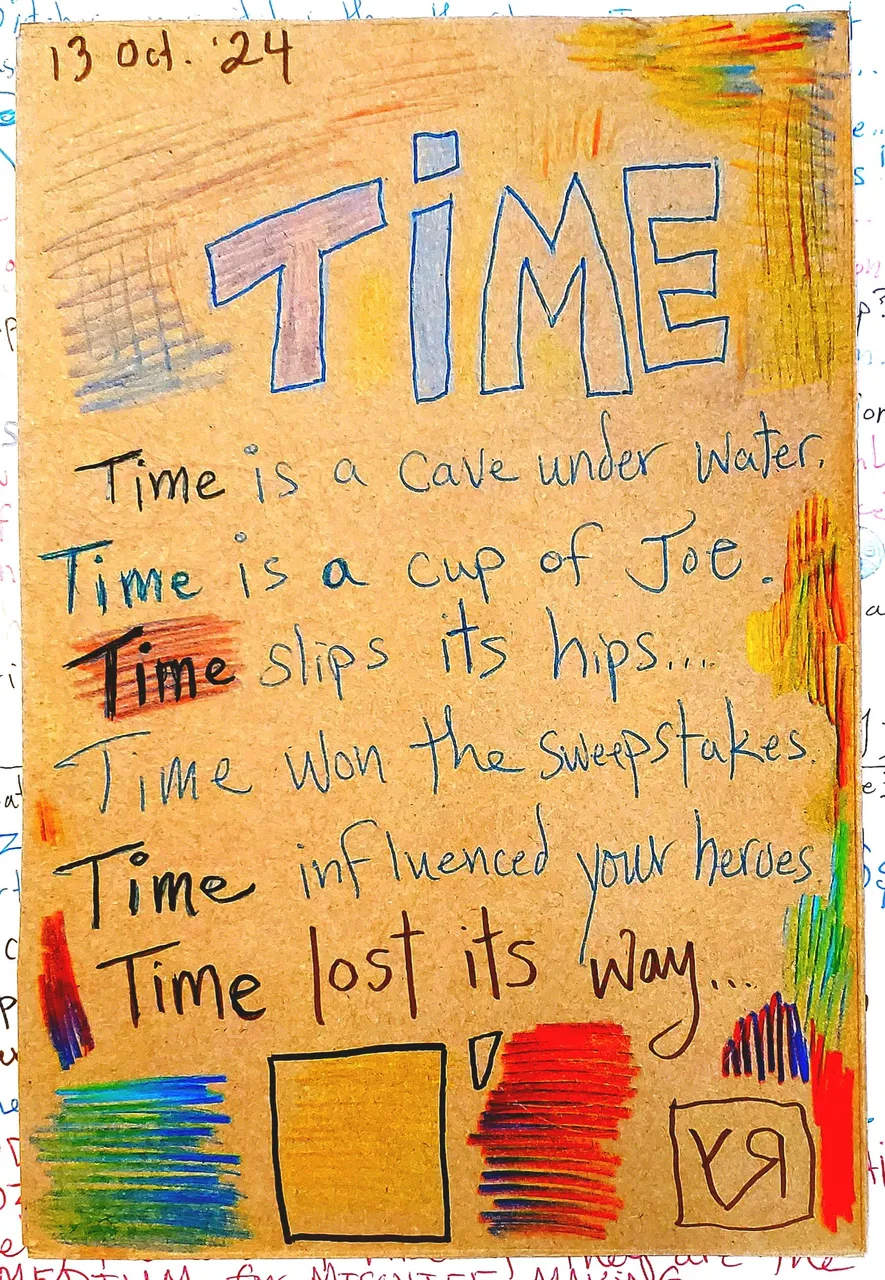 13 Oct. '24
TiME
Time is a cave under water.
Time is a cup of Joe.
Time slips its hips....
Time won the sweepstakes.
Time influenced your heroes
Time lost its way...
YR
the
MEDIUM for MISCHIEF MAKING